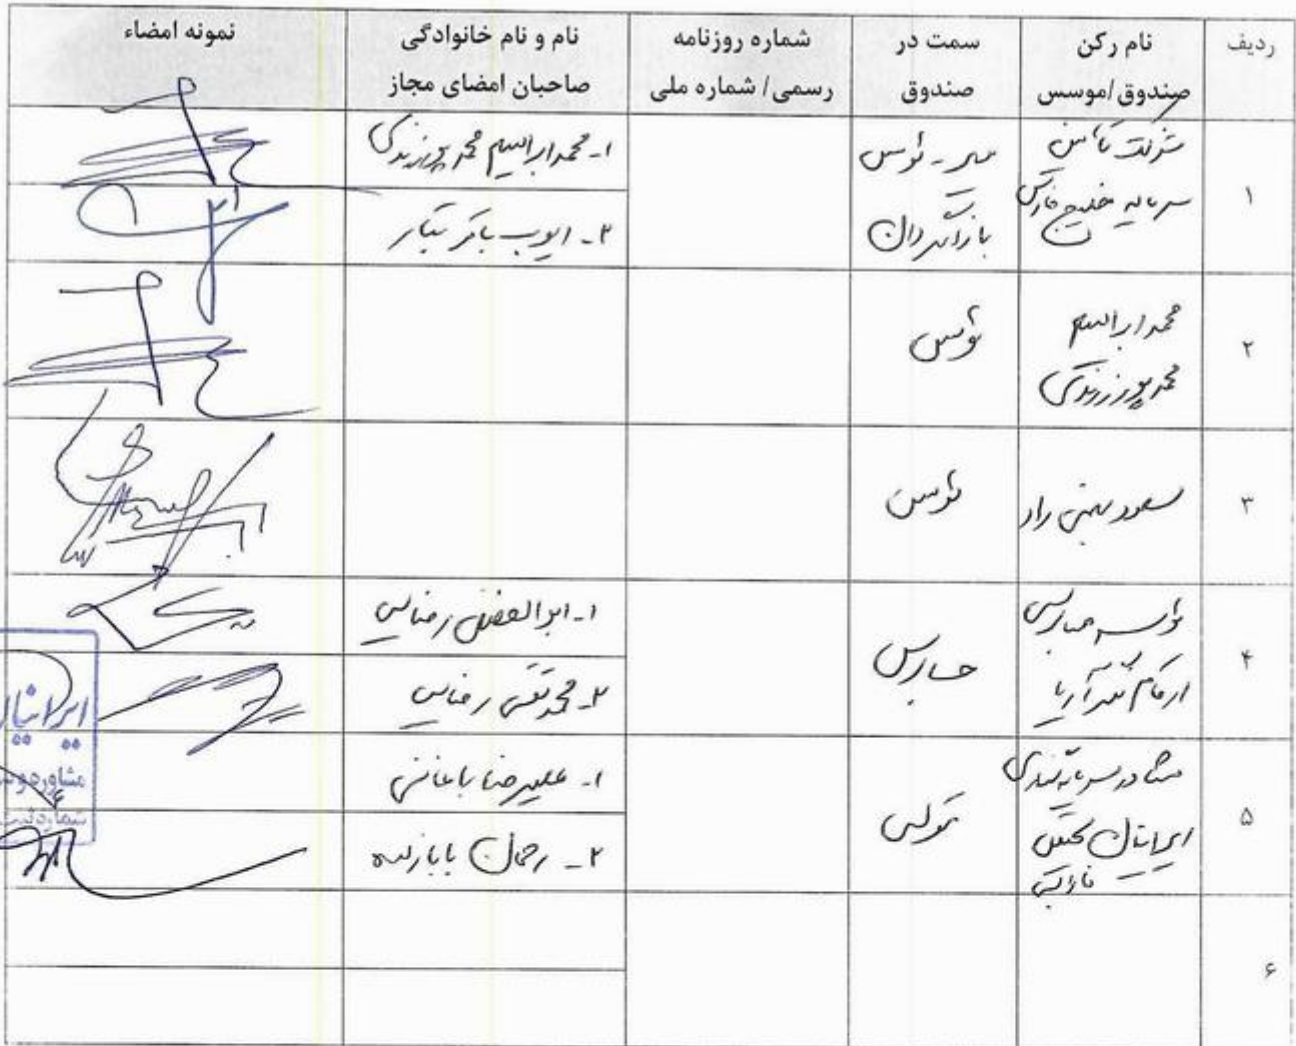 ردیف
نام رکن
صندوق/موسس
سمت در
صندوق
شماره روزنامه
رسمی/ شماره ملی
نام و نام خانوادگی
صاحبان امضای مجاز
نمونه امضاء
۱
شرکت تامین
سرمایه خلیج فارس
مدیر - موسس
بازارگردان
۱- محمدابراهیم محمدپورزرندی
۲- ایوب باقرتبار
۲
محمدابراهیم
محمدپورزرندی
موسس
۳
مسعود بهمنی راد
موسس
۴
موسسه حسابرسی
ارقام نگر آریا
حسابرس
۱- ابوالفضل رضایی
۲- محمدتقی رضایی
۵
مشاور سرمایه‌گذاری
ایرانیان تحلیل
فارابی
متولی
۱- علیرضا باغانی
۲- رحمان بابازاده
۶
ایرانیا
مشاوره و
شماره ثبت